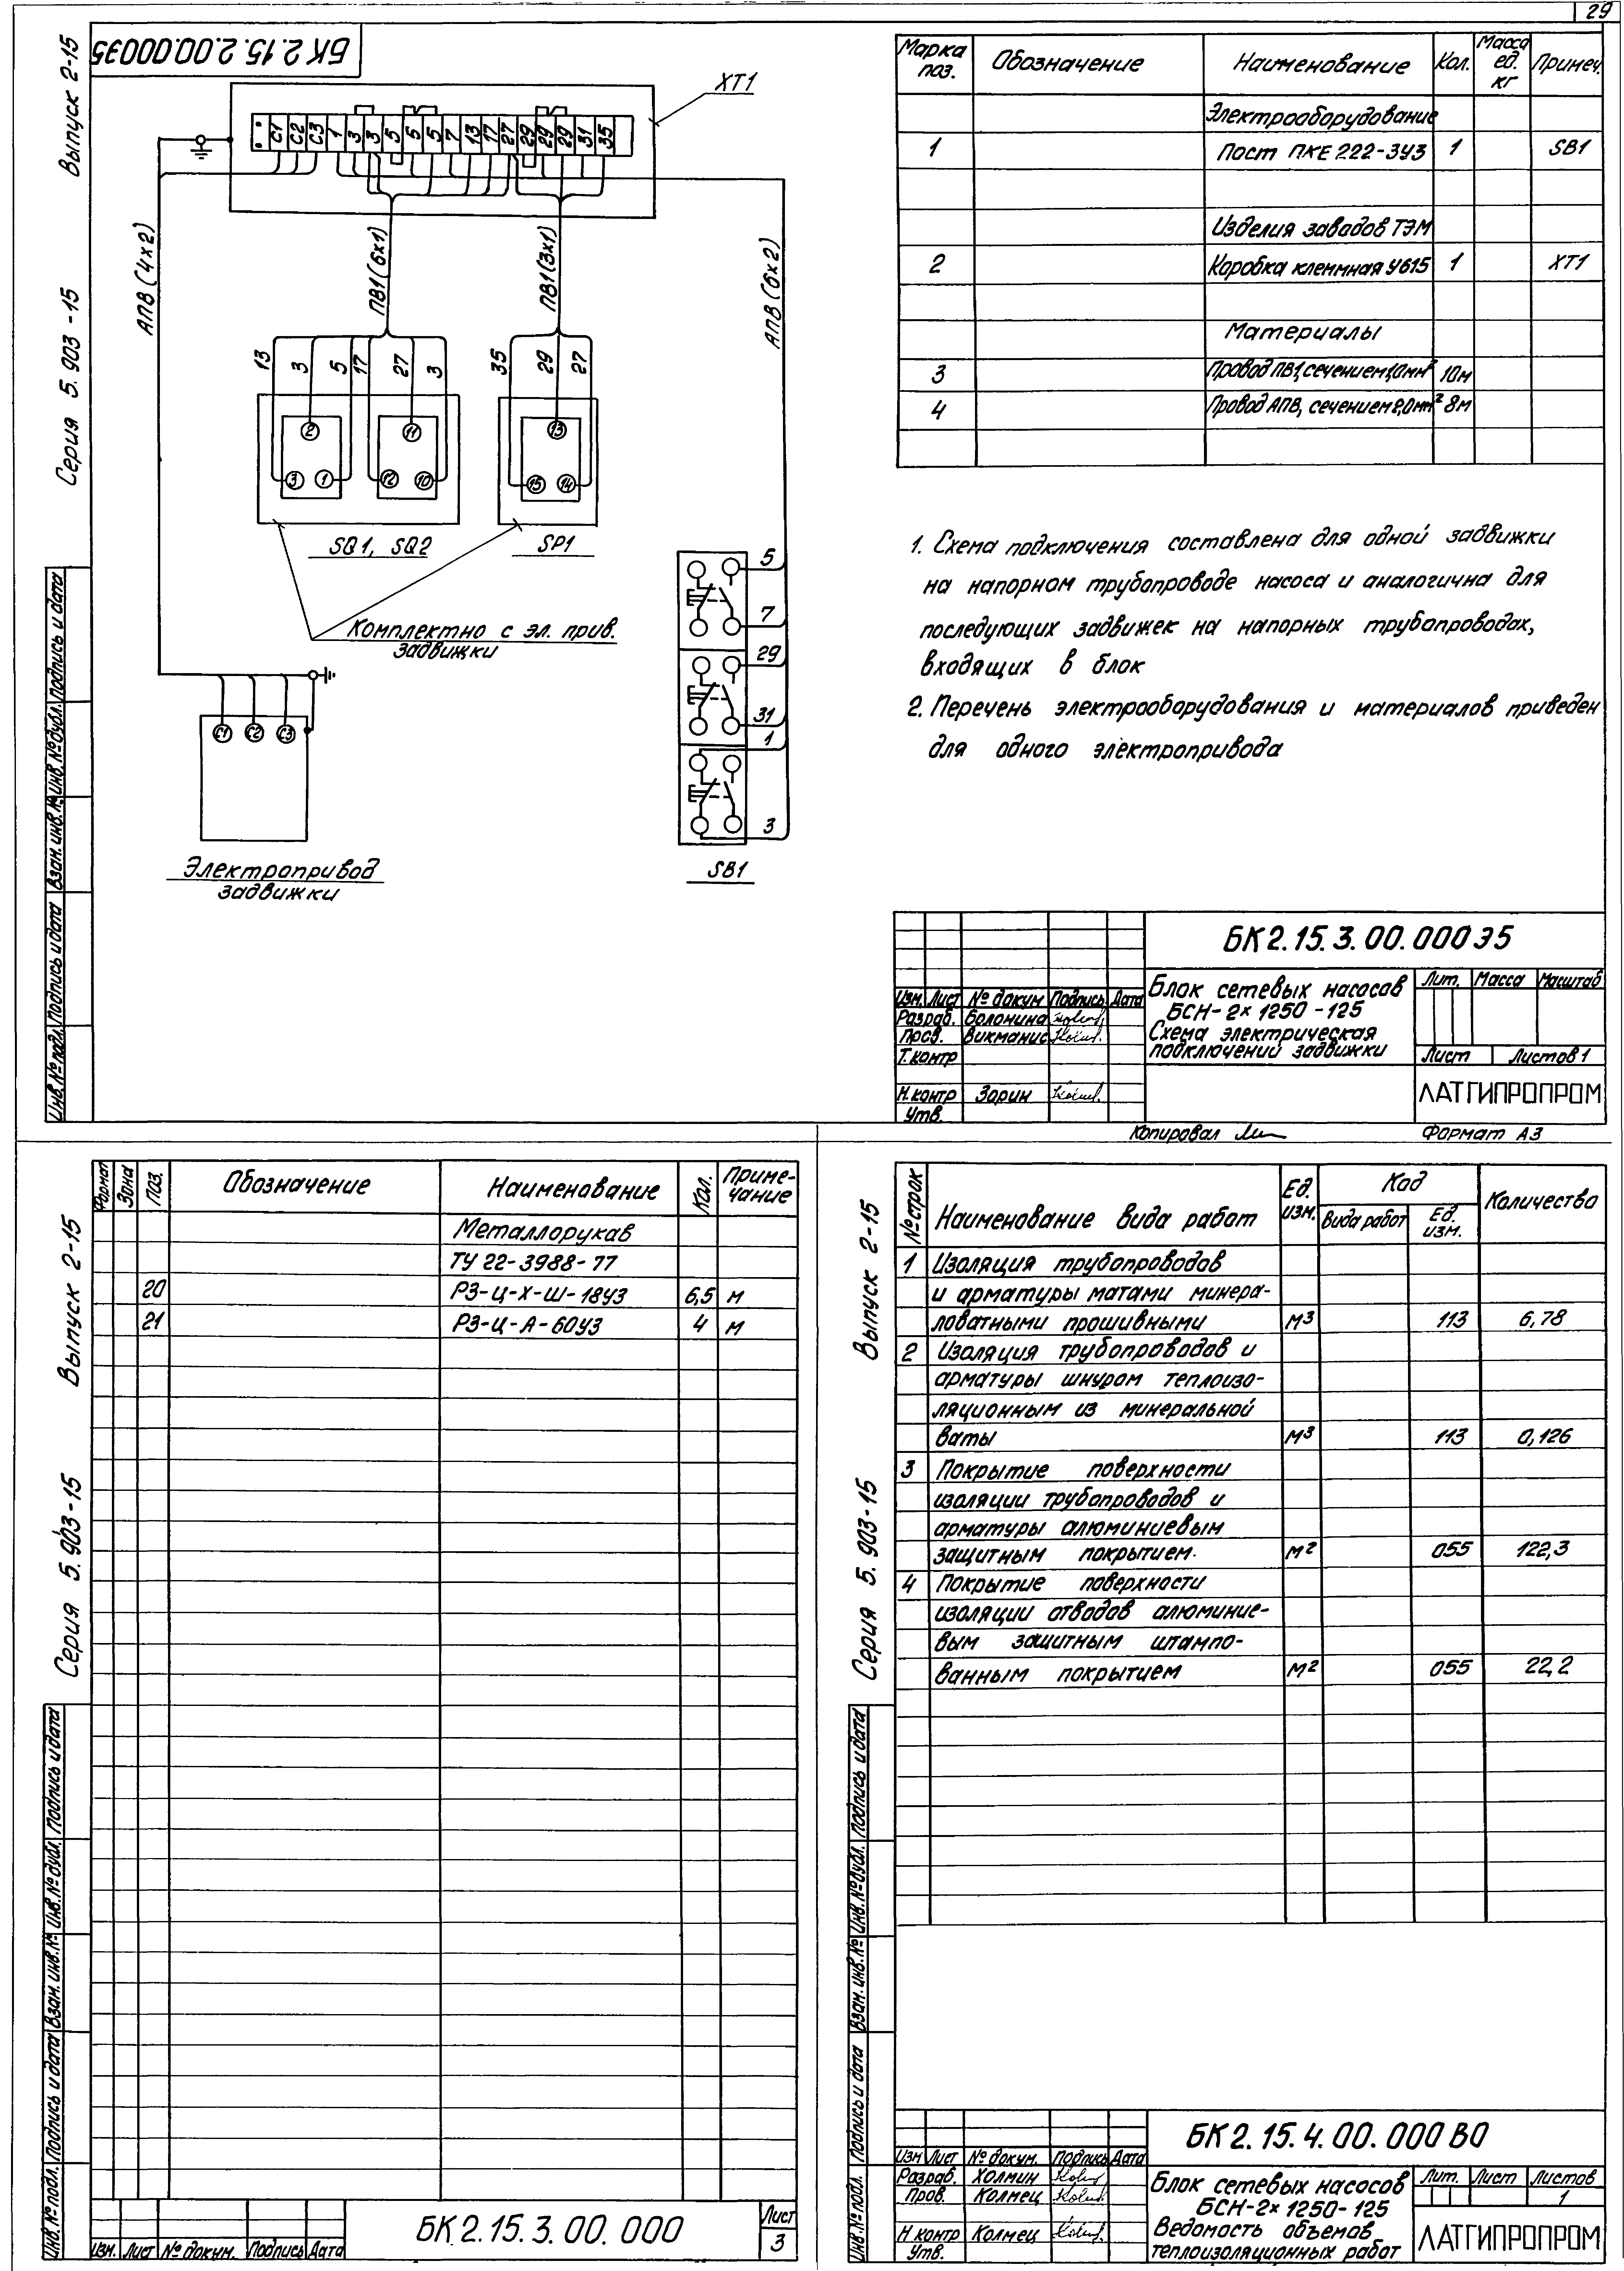 29
БК 2.15.2.00.000Э5
Выпуск 2-15
Серия 5.903-15
XT1
C1 C2 C3 1 3 3 5 5 5 7 13 17 27 29 29 29 31 35
АПВ (4х2)
ПВ1(6х1)
ПВ1(3х1)
АПВ (6х2)
13 3 5 17 27 3
35 29 27
2 11 13
3 1 12 10 15 14
SQ1, SQ2
SP1
Комплектно с эл. прив.
задвижки
5
7
29
31
1
3
SB1
C1 C2 C3
Электропривод
задвижки
Марка поз. Обозначение Наименование Кол. Масса ед. кг Примеч.
Электрооборудование
1 Пост ПКЕ 222-3У3 1 SB1
Изделия заводов ТЭМ
2 Коробка клеммная У615 1 XT1
Материалы
3 Провод ПВ1, сечением 1,0мм² 10м
4 Провод АПВ, сечением 2,0мм² 8м
1. Схема подключения составлена для одной задвижки
на напорном трубопроводе насоса и аналогична для
последующих задвижек на напорных трубопроводах,
входящих в блок
2. Перечень электрооборудования и материалов приведен
для одного электропривода
Инв.№ подл. Подпись и дата Взам. инв. № Инв.№ дубл. Подпись и дата
БК 2.15.3.00.000Э5
Изм. Лист № докум Подпись Дата
Разраб. Болонина
Пров. Викманис
Т.контр
Н.контр Зорин
Утв.
Блок сетевых насосов
БСН-2х1250-125
Схема электрическая
подключений задвижки
Лит. Масса Масштаб
Лист Листов 1
ЛАТГИПРОПРОМ
Копировал
Формат А3
Выпуск 2-15
Серия 5.903-15
Формат Зона Поз. Обозначение Наименование Кол. Приме-
чание
Металлорукав
ТУ 22-3988-77
20 РЗ-Ц-Х-Ш-18У3 6,5 м
21 РЗ-Ц-А-60У3 4 м
Инв.№ подл. Подпись и дата Взам. инв.№ Инв.№ дубл. Подпись и дата
Изм. Лист № докум. Подпись Дата
БК 2.15.3.00.000
Лист
3
Выпуск 2-15
Серия 5.903-15
№ строк Наименование вида работ Ед. изм. Код Количество
Вида работ Ед. изм.
1 Изоляция трубопроводов
и арматуры матами минера-
ловатными прошивными м³ 113 6,78
2 Изоляция трубопроводов и
арматуры шнуром теплоизо-
ляционным из минеральной
ваты м³ 113 0,126
3 Покрытие поверхности
изоляции трубопроводов и
арматуры алюминиевым
защитным покрытием. м² 055 122,3
4 Покрытие поверхности
изоляции отводов алюминие-
вым защитным штампо-
ванным покрытием м² 055 22,2
Инв.№ подл. Подпись и дата Взам. инв.№ Инв.№ дубл. Подпись и дата
БК 2.15.4.00.000ВО
Изм Лист № докум. Подпись Дата
Разраб. Холмин
Пров. Колмец
Н контр Колмец
Утв.
Блок сетевых насосов
БСН-2х1250-125
Ведомость объемов
теплоизоляционных работ
Лит. Лист Листов
1
ЛАТГИПРОПРОМ